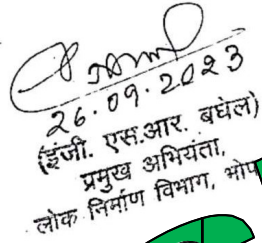 26.09.2023
(इंजी. एस.आर. बघेल)
प्रमुख अभियंता,
लोक निर्माण विभाग, भोप